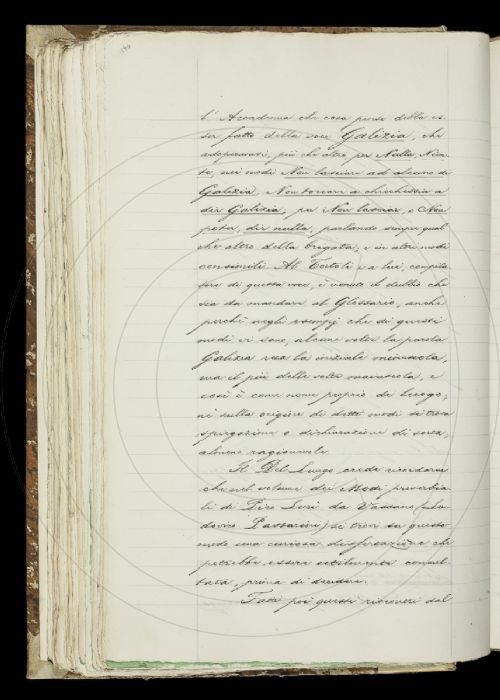 l'Accademia che cosa pensa debba es-
ser fatto della voce Galizia, che
adoperavasi, più che altro per Nulla, Nien-
te, nei modi Non lasciare ad alcuno di
Galizia, Non toccare a chicchessia a
dir Galizia; per Non lasciar, o Non
poter, dir nulla, parlando sempre qual-
che altro della brigata; e in altri modi
consimili. Al Tortoli e a lui, compila-
tore di questa voce, è venuto il dubbio che
sia da mandare al Glossario, anche
perchè negli esempj che di questi
modi vi sono, alcune volte la parola
Galizia reca la iniziale minuscola,
ma il più delle volte maiuscola, e
così è come nome proprio di luogo;
nè sulla origine di detti modi si trova
spiegazione o dichiarazione di sorta,
almeno ragionevole.
Il Del Lungo crede ricordarsi
che nel volume dei Modi proverbia-
li di Pico Luri da Vassano (Lu-
dovico Passarini) si trovi su questo
modo una curiosa dissertazione che
potrebbe essere utilmente consul-
tata, prima di decidere.
Fatti poi questi riscontri dal